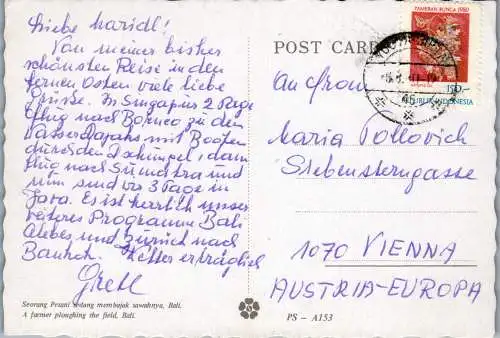 Liebe Maridl!
Von meiner bisher
schönsten Reise in den
fernen Osten viele liebe
Grüße. In Singapur 2 Tage
flug nach Borneo zu den
mit Booten
durch den Dschungel, dann
flug nach Sumatra und
nun sind wir 3 Tage in
Java. Es ist herrlich unser
weiteres Programm Bali
Celebes und zurück nach
Wetter erträglich
Gretl
Seorang Petani sedang membajak sawahnya, Bali.
A farmer ploughing the field, Bali.
POST CARD
PAMERAN BUNGA 1980
150,-
REPUBLIK INDONESIA
An Frau
Maria Pollovich
Siebensterngasse
1070 VIENNA
AUSTRIA-EUROPA
PS - A153